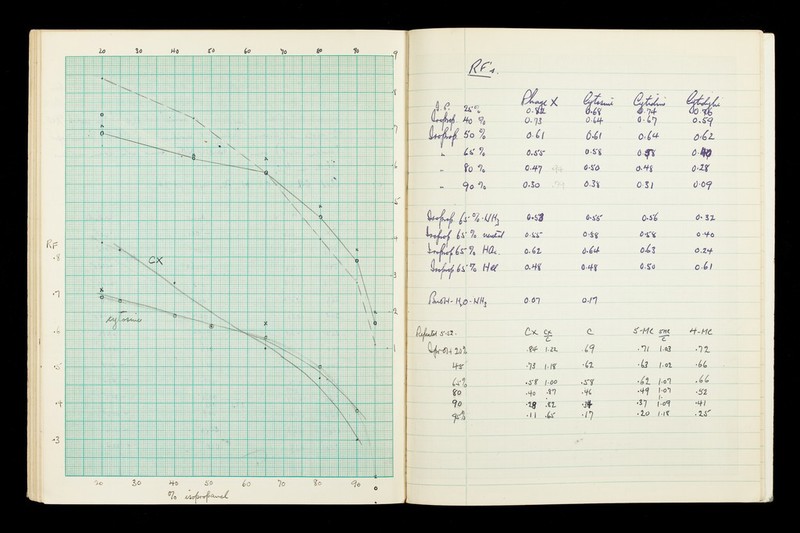 20 30 40 50 60 70 80 90
9
8
7
6
5
4
3
2
1
RF
.8
.7
.6
.5
.4
.3
CX
cytosine
20 30 40 50 60 70 80 90
% isopropanol
RF's.
Phage X Cytosine Cytidine Cytidylic
25% 0.82 0.68 0.74 0.86
Isoprop. 40 % 0.73 0.64 0.67 0.59
Isoprop. 50 % 0.61 0.61 0.64 0.62
" 65 % 0.55 0.58 0.58 0.40
" 80 % 0.47 0.50 0.48 0.28
" 90 % 0.30 0.38 0.31 0.09
Isoprop 65 % NH3 0.53 0.55 0.56 0.32
Isoprop 65 % neutral 0.55 0.58 0.58 0.40
Isoprop 65 % HAc 0.62 0.64 0.63 0.24
Isoprop 65 % HCl 0.48 0.48 0.50 0.61
BuOH-H2O-NH3 0.07 0.17
Repeated 5-52. CX CX/C C 5-MC 5MC/C 4-MC
20% .84 1.22 .69 .71 1.03 .72
45 .73 1.18 .62 .63 1.02 .66
65% .58 1.00 .58 .62 1.07 .66
80 .40 .87 .46 .49 1.07 .52
90 .28 .82 .34 .37 1.09 .41
95% .11 .65 .17 .20 1.18 .25